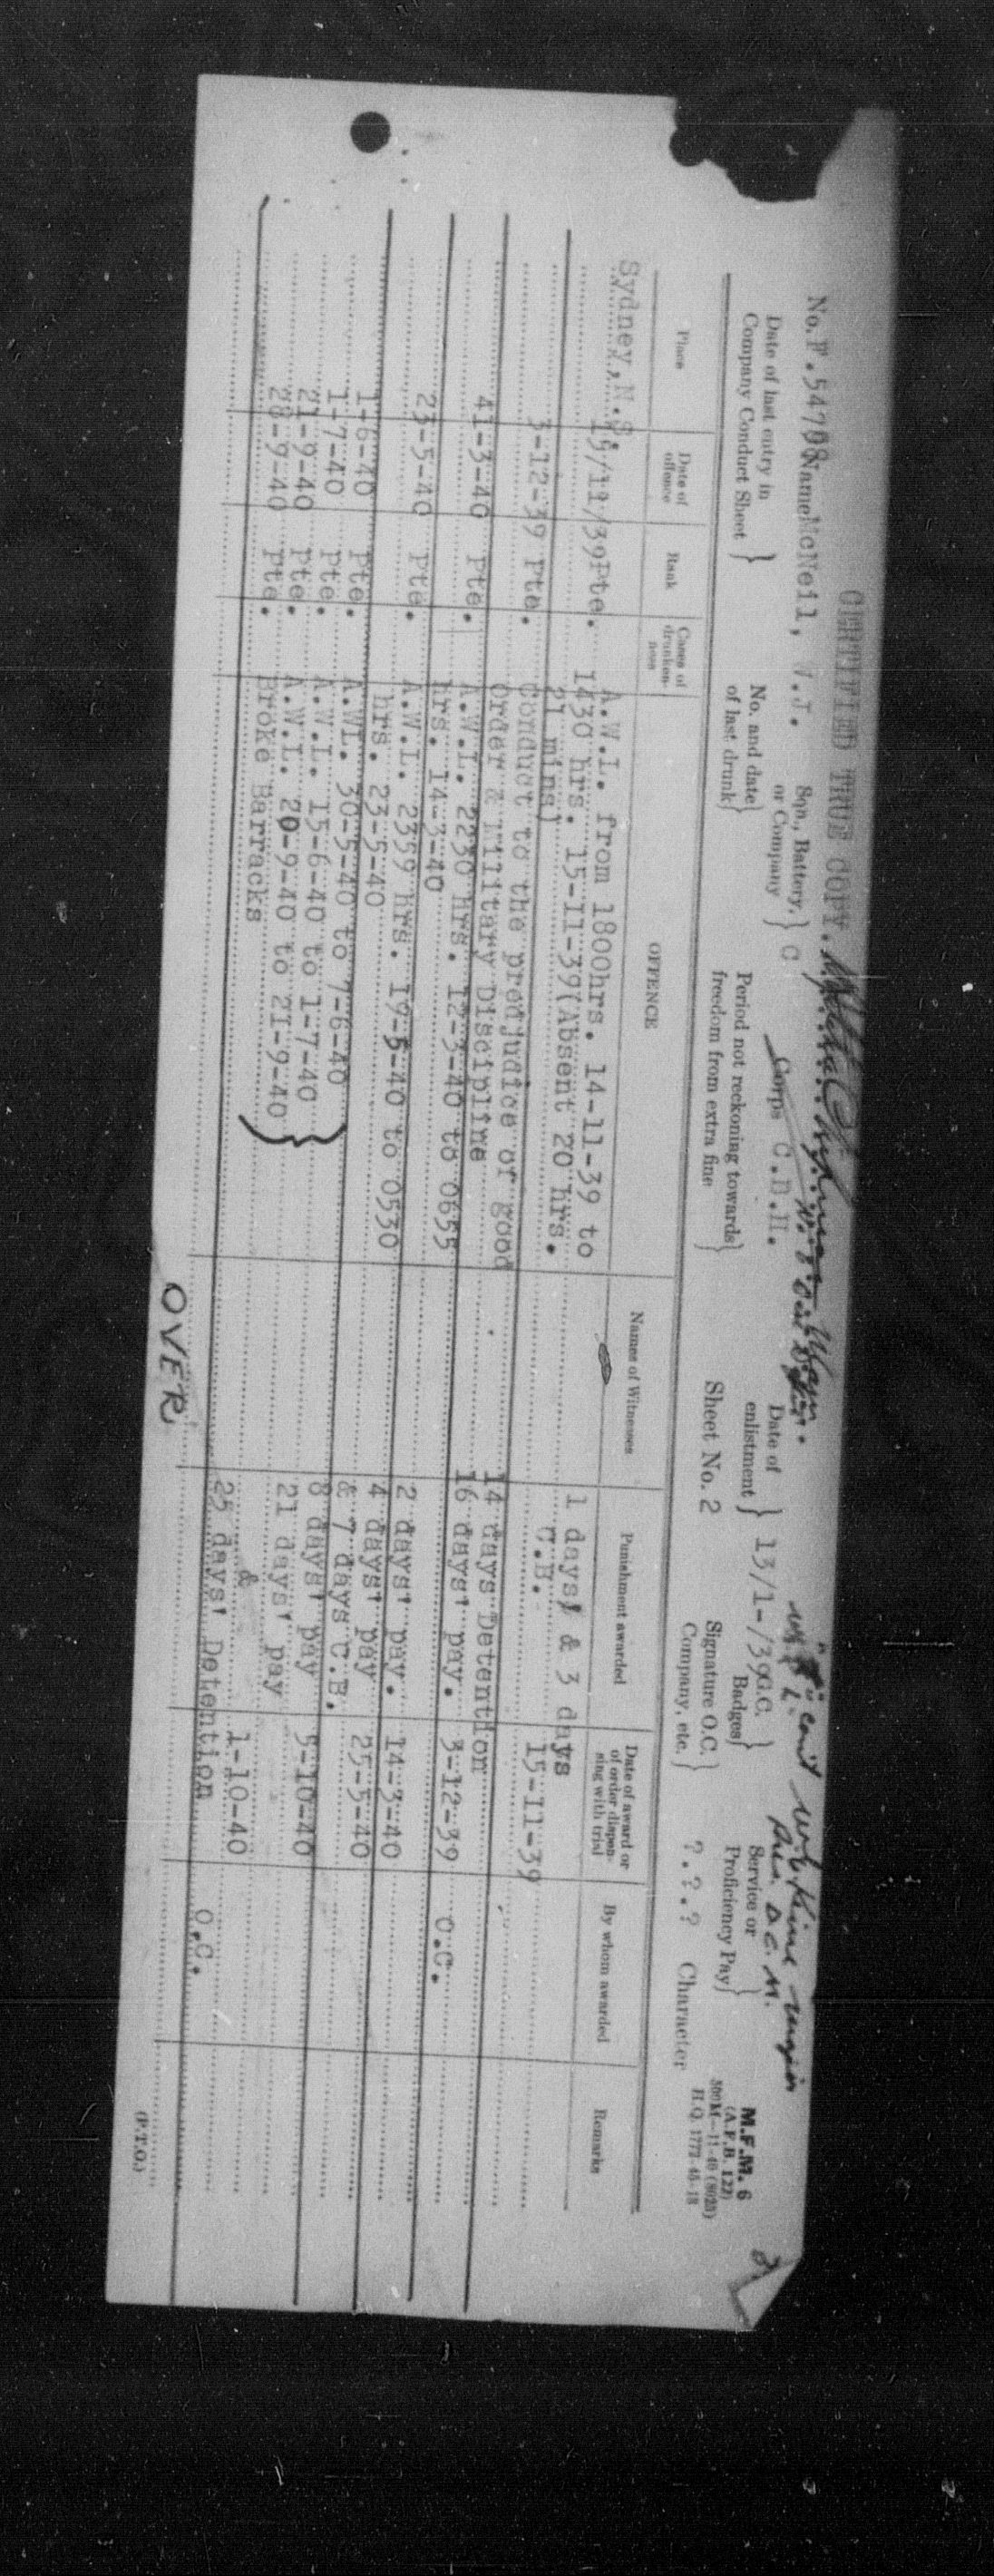 CERTIFIED TRUE COPY.
No. F.54708 Name McNeil, W.J. Sqn., Battery, or Company } C Corps C.B.H. Date of enlistment } 13/1-/39 G.C. Badges } Service or Proficiency Pay }
M.F.M. 6
(A.F.B. 122)
500M—11-40 (8023)
H.Q. 1772-45-18
Date of last entry in Company Conduct Sheet } No. and date of last drunk } Period not reckoning towards freedom from extra fine } Sheet No. 2 Signature O.C. Company, etc. } ?.?.? Character
Place Date of offence Rank Cases of drunkenness OFFENCE Names of Witnesses Punishment awarded Date of award or of order dispensing with trial By whom awarded Remarks
Sydney, N.S. 15/11/39 Pte. A.W.L. from 1800hrs. 14-11-39 to 1 days' & 3 days
1430 hrs. 15-11-39(Absent 20 hrs. C.B. 15-11-39
21 mins)
3-12-39 Pte. Conduct to the predjudice of good
Order & Military Discipline 14 days Detention
41-3-40 Pte. A.W.L. 2230 hrs. 12-3-40 to 0655 16 days' pay. 3-12-39 O.C.
hrs. 14-3-40
23-5-40 Pte. A.W.L. 2359 hrs. 19-5-40 to 0530 2 days' pay. 14-3-40
hrs. 23-5-40 4 days' pay 25-5-40
1-6-40 Pte. A.WL. 30-5-40 to 7-6-40 & 7 days C.B.
1-7-40 Pte. A.W.L. 15-6-40 to 1-7-40 8 days' pay 5-10-40
21-9-40 Pte. A.W.L. 20-9-40 to 21-9-40 21 days' pay
28-9-40 Pte. Broke Barracks &
1-10-40
25 days' Detention O.C.
OVER
(P.T.O.)